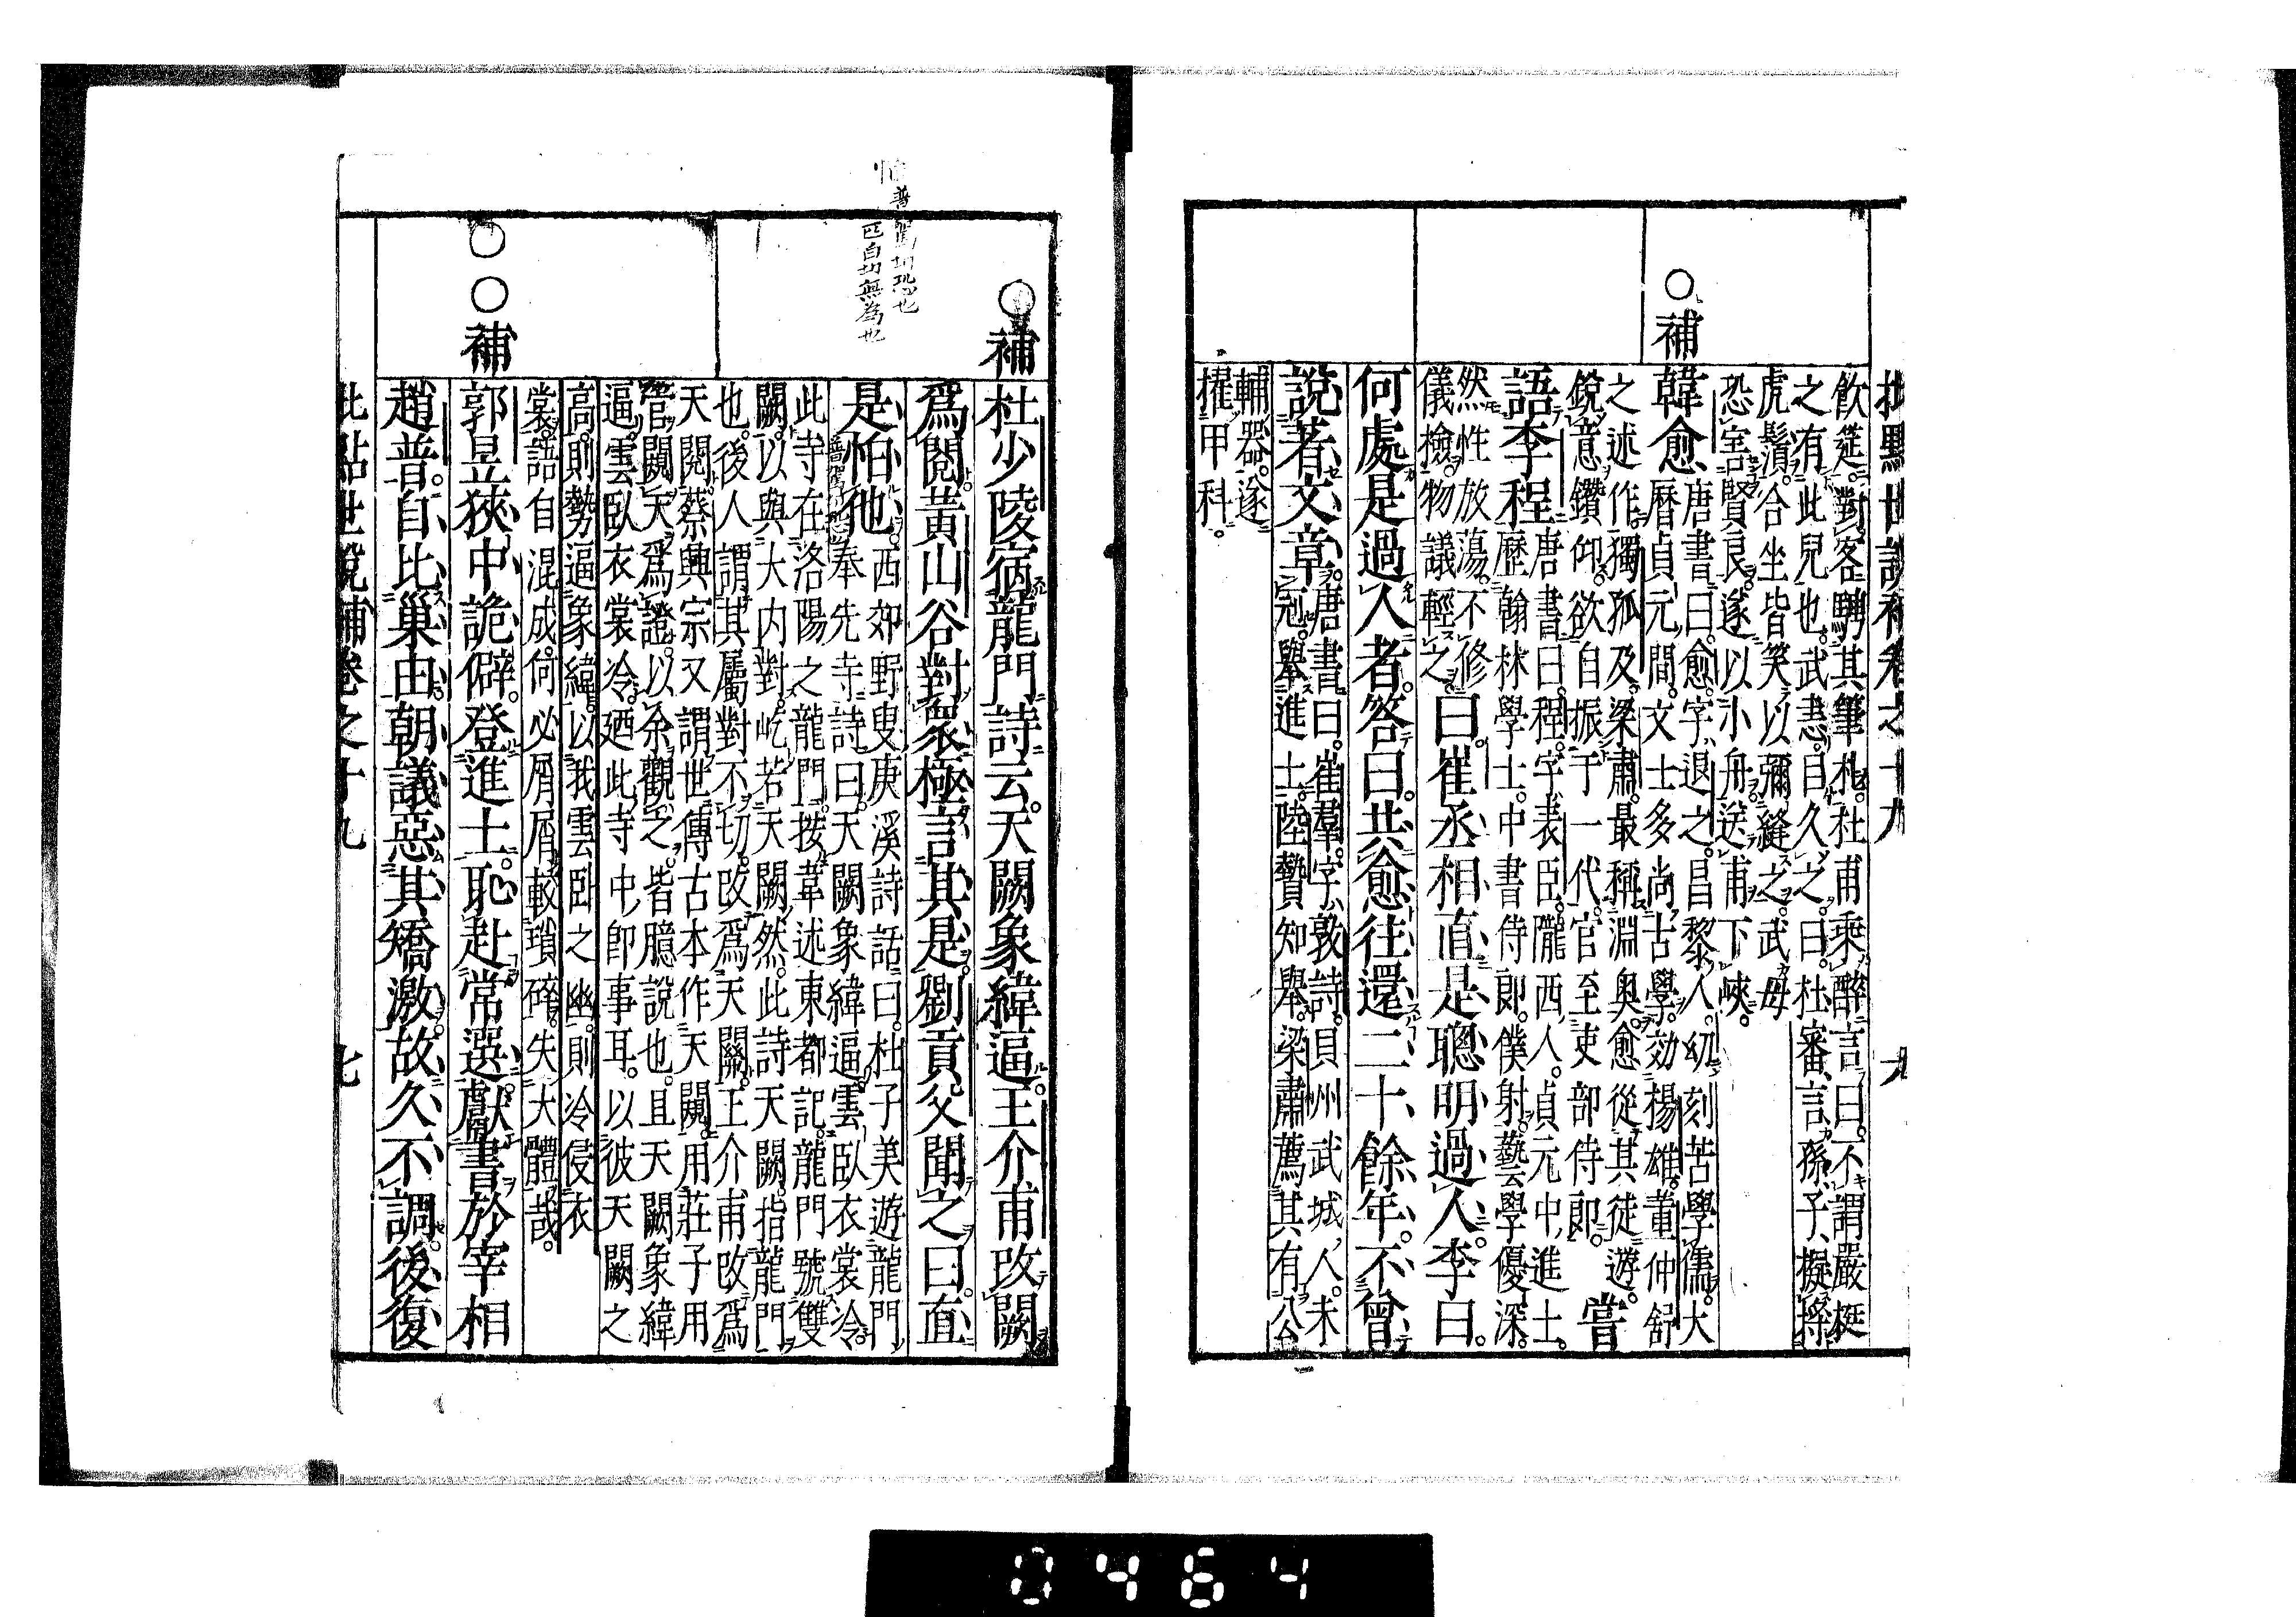 批點世說補卷之十九
飲筵對客騁其筆札杜甫乘醉言曰不謂嚴挺
之有此兒也武恚目久之曰杜審言孫子擬捋
虎鬚合坐皆笑以彌縫之武母
恐害賢良遂以小舟送甫下峽
○補
韓愈
唐書曰愈字退之昌黎人幼刻苦學儒大
曆貞元間文士多尚古學効楊雄董仲舒
之述作獨孤及梁肅最稱淵奧愈從其徒遊
銳意鑽仰欲自振于一代官至吏部侍郎
嘗
語李程
唐書曰程字表臣隴西人貞元中進士
歷翰林學士中書侍郎僕射藝學優深
然性放蕩不修
儀檢物議輕之
曰崔丞相直是聰明過人李曰
何處是過人者答曰共愈往還二十餘年不曾
說著文章
唐書曰崔羣字敦詩貝州武城人未
冠舉進士陸贄知舉梁肅薦其有公
輔器遂
擢甲科
○補
杜少陵宿龍門詩云天闕象緯逼王介甫改闕
爲閱黃山谷對衆極言其是劉貢父聞之曰直
是怕他
西郊野叟庚溪詩話曰杜子美遊龍門
奉先寺詩曰天闕象緯逼雲臥衣裳冷
此寺在洛陽之龍門按韋述東都記龍門號雙
闕以與大內對屹若天闕然此詩天闕指龍門
也後人謂其屬對不切改爲天關王介甫改爲
天閱蔡興宗又謂世傳古本作天闚用莊子用
管闚天爲證以余觀之皆臆說也且天闕象緯
逼雲臥衣裳冷廼此寺中即事耳以彼天闕之
高則勢逼象緯以我雲臥之幽則冷侵衣
裳語自混成何必屑屑較瑣碎失大體哉
○○補
郭昱狹中詭僻登進士恥赴常選獻書於宰相
趙普自比巢由朝議惡其矯激故久不調後復
批點世說補卷之十九
七
普駕切恐也
匹白切無爲也
0464